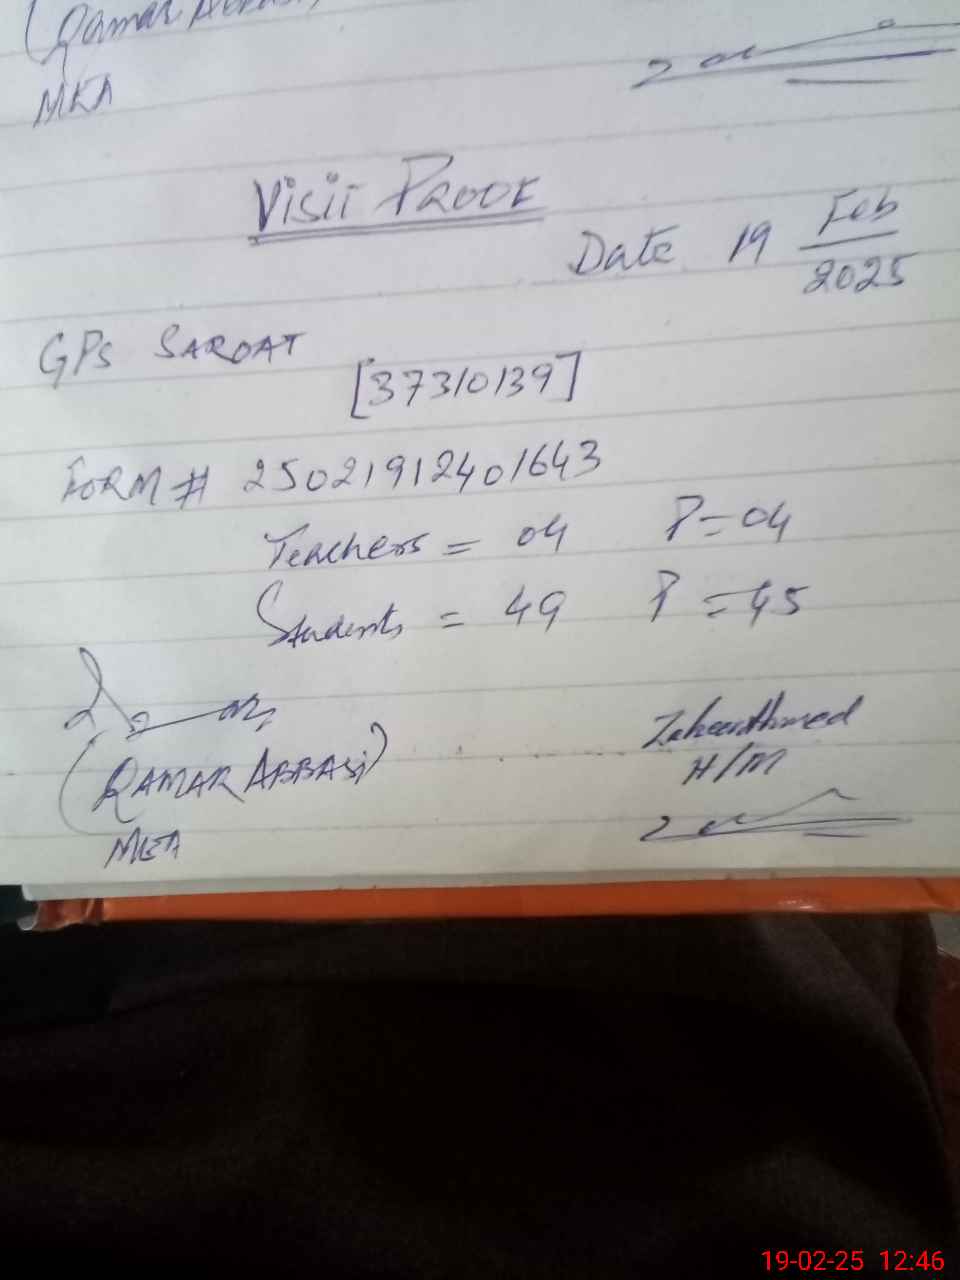 (Qamar Abbasi)
MEA
Visit Proof
Date 19 Feb 2025
GPS SAROAT
[37310139]
FORM # 25021912401643
Teachers = 04 P = 04
Students = 49 P = 45
(QAMAR ABBASI)
MEA
Zaheer Ahmed
H/M
19-02-25 12:46